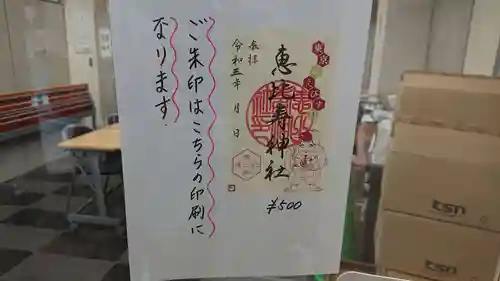 ご朱印はこちらの印刷に
なります.
東京
えびす
恵比寿神社
奉拝
令和三年 月 日
¥500
tsn
tsn